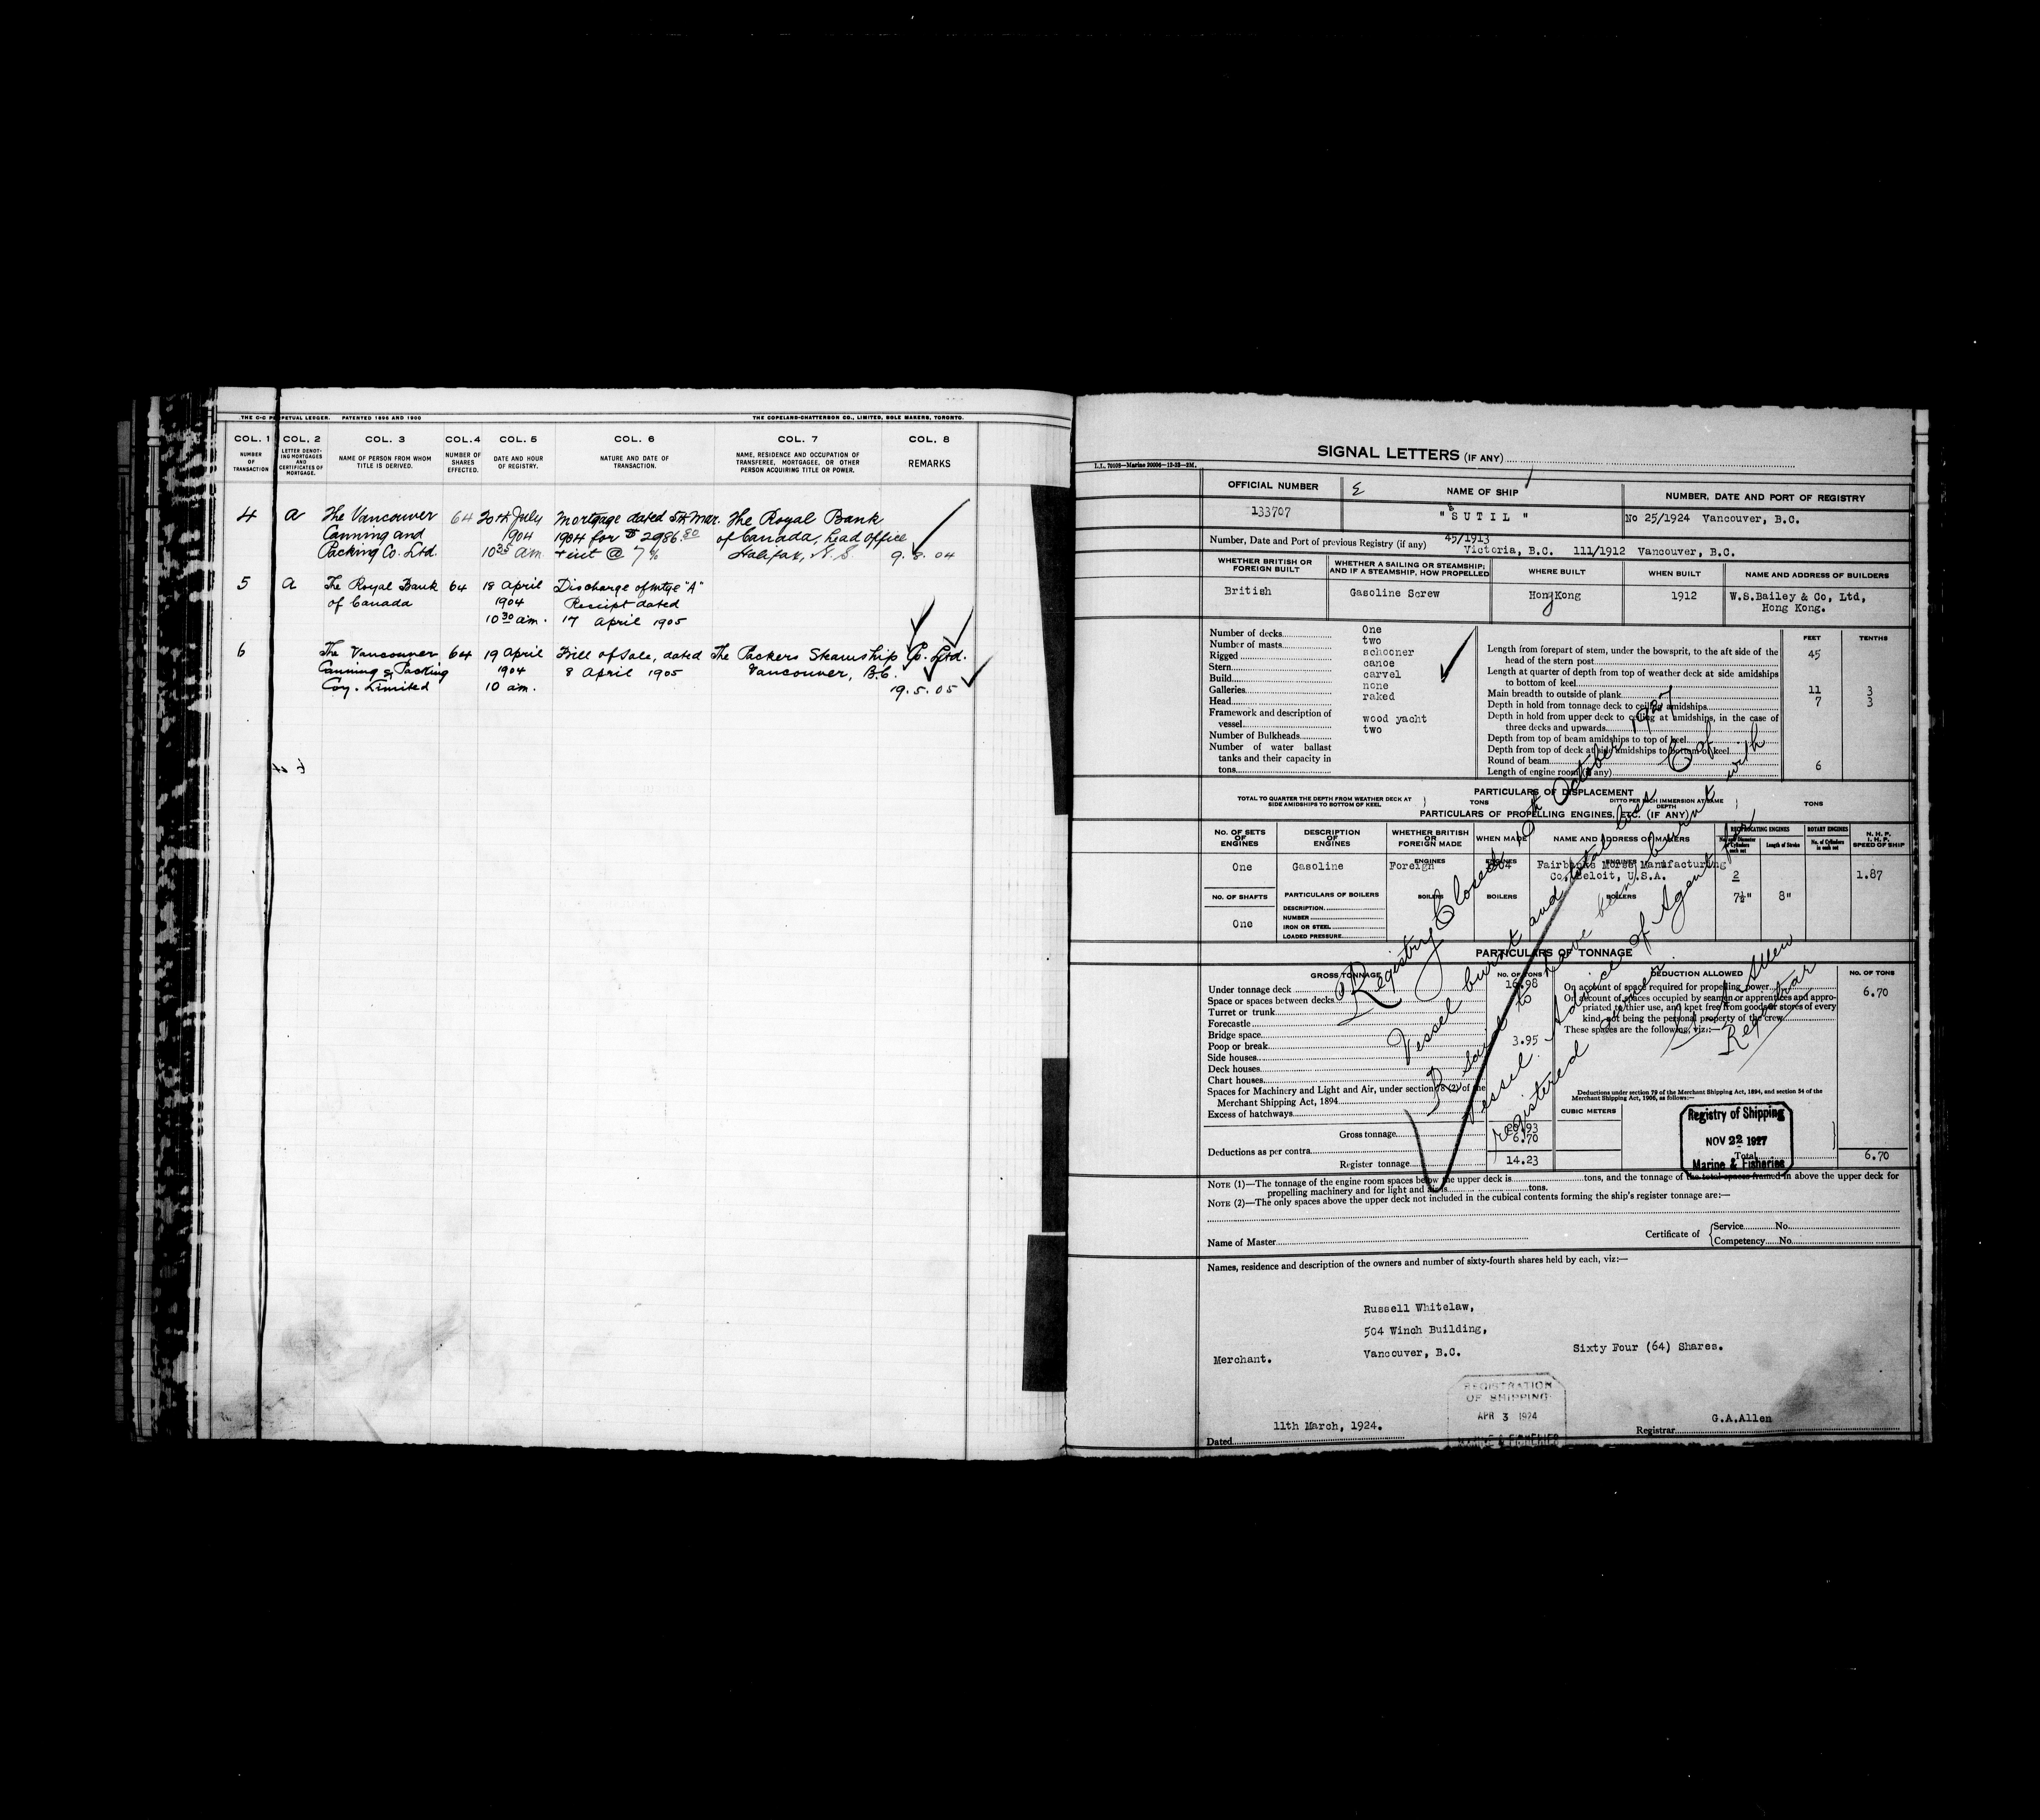 THE C-C PERPETUAL LEDGER. PATENTED 1896 AND 1900
THE COPELAND-CHATTERSON CO., LIMITED, SOLE MAKERS, TORONTO.
COL. 1 COL. 2 COL. 3 COL. 4 COL. 5 COL. 6 COL. 7 COL. 8
NUMBER OF TRANSACTION
LETTER DENOTING MORTGAGES AND CERTIFICATES OF MORTGAGE.
NAME OF PERSON FROM WHOM TITLE IS DERIVED.
NUMBER OF SHARES EFFECTED.
DATE AND HOUR OF REGISTRY.
NATURE AND DATE OF TRANSACTION.
NAME, RESIDENCE AND OCCUPATION OF TRANSFEREE, MORTGAGEE, OR OTHER PERSON ACQUIRING TITLE OR POWER.
REMARKS
4 A The Vancouver 64 20th July Mortgage dated 5th Mar. The Royal Bank
Canning and 1904 1904 for $2986.80 of Canada, head office
Packing Co. Ltd. 10 35 am + int @ 7% Halifax, N.S. 9.8.04
5 A The Royal Bank 64 18 April Discharge of mtge "A"
of Canada 1904 Receipt dated
10 30 am. 17 April 1905
6 The Vancouver 64 19 April Bill of Sale, dated The Packers Steamship Co. Ltd.
Canning & Packing 1904 8 April 1905 Vancouver, B.C.
Coy. Limited 10 am. 19.5.05
SIGNAL LETTERS (IF ANY)
OFFICIAL NUMBER NAME OF SHIP NUMBER, DATE AND PORT OF REGISTRY
133707 "SUTIL" No 25/1924 Vancouver, B.C.
Number, Date and Port of previous Registry (if any) 45/1913
Victoria, B.C. 111/1912 Vancouver, B.C.
WHETHER BRITISH OR FOREIGN BUILT
WHETHER A SAILING OR STEAMSHIP; AND IF A STEAMSHIP, HOW PROPELLED
WHERE BUILT
WHEN BUILT
NAME AND ADDRESS OF BUILDERS
British Gasoline Screw HongKong 1912 W.S.Bailey & Co, Ltd,
Hong Kong.
Number of decks One
Number of masts two
Rigged schooner
Stern canoe
Build carvel
Galleries none
Head raked
Framework and description of vessel wood yacht
Number of Bulkheads two
Number of water ballast tanks and their capacity in tons
FEET TENTHS
Length from forepart of stem, under the bowsprit, to the aft side of the head of the stern post 45
Length at quarter of depth from top of weather deck at side amidships to bottom of keel
Main breadth to outside of plank 11 3
Depth in hold from tonnage deck to ceiling at amidships 7 3
Depth in hold from upper deck to ceiling at amidships, in the case of three decks and upwards
Depth from top of beam amidships to top of keel
Depth from top of deck at side amidships to bottom of keel
Round of beam
Length of engine room (if any) 6
PARTICULARS OF DISPLACEMENT
TOTAL TO QUARTER THE DEPTH FROM WEATHER DECK AT SIDE AMIDSHIPS TO BOTTOM OF KEEL
TONS
DITTO PER INCH IMMERSION AT SAME DEPTH
TONS
PARTICULARS OF PROPELLING ENGINES, ETC. (IF ANY)
No. OF SETS OF ENGINES
DESCRIPTION OF ENGINES
WHETHER BRITISH OR FOREIGN MADE
WHEN MADE
NAME AND ADDRESS OF MAKERS
RECIPROCATING ENGINES
Length of Stroke
ROTARY ENGINES
N. H. P. I. H. P. SPEED OF SHIP
ENGINES ENGINES ENGINES
One Gasoline Foreign Fairbanks Morse Manufacturing
Co, Beloit, U.S.A. 2 1.87
No. OF SHAFTS PARTICULARS OF BOILERS BOILERS BOILERS BOILERS 7½" 8"
One
DESCRIPTION
NUMBER
IRON OR STEEL
LOADED PRESSURE
PARTICULARS OF TONNAGE
GROSS TONNAGE No. OF TONS DEDUCTION ALLOWED No. OF TONS
Under tonnage deck 16.98
Space or spaces between decks
Turret or trunk
Forecastle
Bridge space
Poop or break 3.95
Side houses
Deck houses
Chart houses
Spaces for Machinery and Light and Air, under section 78 (2) of the
Merchant Shipping Act, 1894
Excess of hatchways
Gross tonnage 20.93
Deductions as per contra 6.70
Register tonnage 14.23
CUBIC METERS
On account of space required for propelling power 6.70
On account of spaces occupied by seamen or apprentices and appropriated to thier use, and kpet free from goods or stores of every kind, not being the personal property of the crew
These spaces are the following, viz:—
Deductions under section 79 of the Merchant Shipping Act, 1894, and section 54 of the Merchant Shipping Act, 1906, as follows:—
Total 6.70
Registry of Shipping
NOV 22 1927
Marine & Fisheries
Registry Closed October 1927
Vessel burnt and total loss C of
R said to have been burnt with
vessel. Advice of Agent for
registered owner.
Allen
Registrar
NOTE (1)—The tonnage of the engine room spaces below the upper deck is tons, and the tonnage of the total spaces framed in above the upper deck for
propelling machinery and for light and air is tons.
NOTE (2)—The only spaces above the upper deck not included in the cubical contents forming the ship's register tonnage are:—
Name of Master
Certificate of Service No.
Competency No.
Names, residence and description of the owners and number of sixty-fourth shares held by each, viz:—
Russell Whitelaw,
504 Winch Building,
Merchant. Vancouver, B.C. Sixty Four (64) Shares.
REGISTRATION
OF SHIPPING
APR 3 1924
MARINE & FISHERIES
Dated 11th March, 1924.
Registrar G.A.Allen